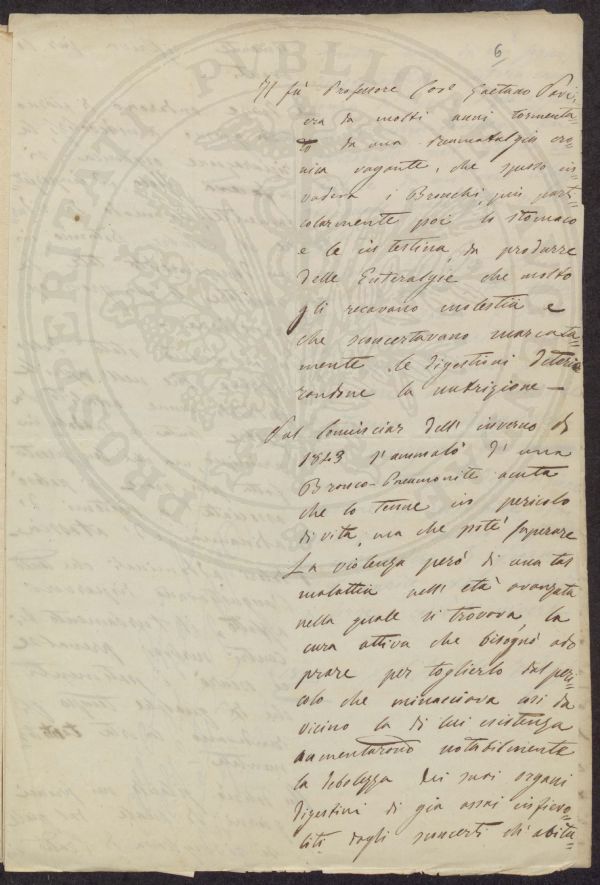 6
Il fù Professore Cav.e Gaetano Savi,
era da molti anni tormenta=
to da una reumatalgia cro=
nica vagante, che spesso in=
vadeva i Bronchi, più parti=
colarmente poi lo stomaco
e le intestina, da produrre
delle Enteralgie che molto
gli recavano molestia e
che sconcertavano marcata=
mente le digestioni deterio
randone la nutrizione —
Sul cominciar dell' inverno di
1843 s'ammalò d'una
Bronco-Pneumonite acuta
che lo tenne in pericolo
di vita, ma che poté superare
La violenza però di una tal
malattia nell' età avanzata
nella quale si trovava, la
cura attiva che bisognò ado
prare per toglierlo dal peri=
colo che minacciava così da
vicino la di lui esistenza
aumentarono notabilmente
la debolezza dei suoi organi
digestivi di già assai infievo=
liti dagli sconcerti ch' abitu=
PROSPERITATI PUBLICAE